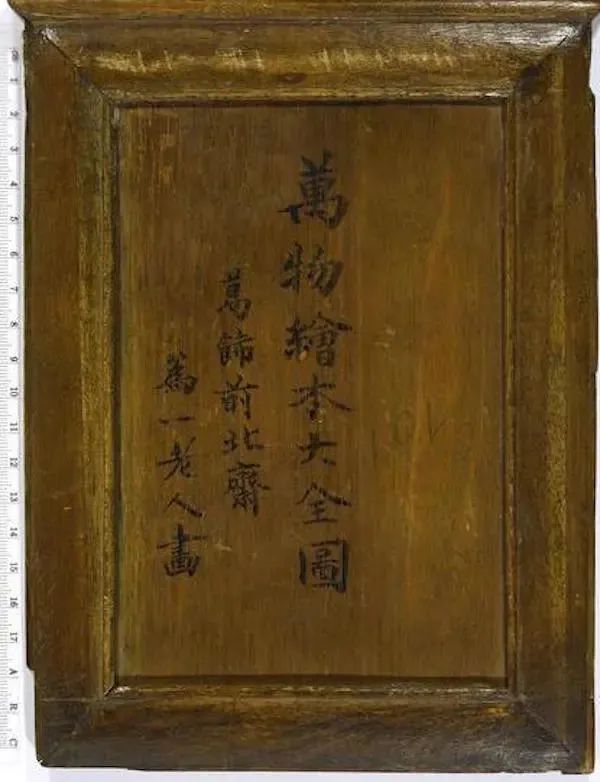 萬物繪本大全圖
葛飾前北齋
爲一老人畫
0
1
2
3
4
5
6
7
8
9
10
11
12
13
14
15
16
17
A
R
C